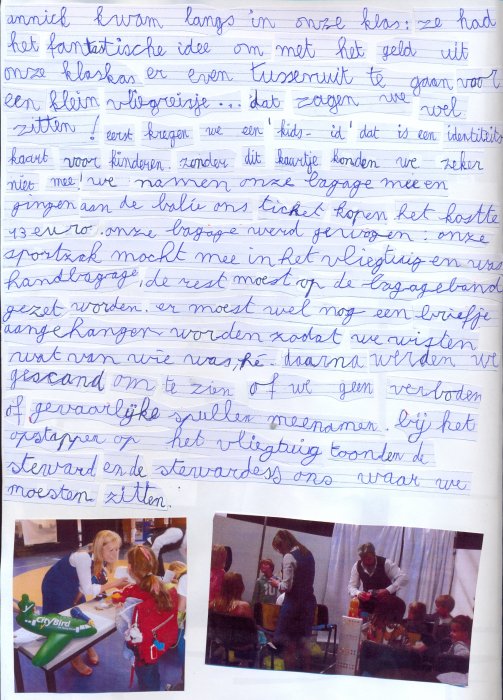 annick kwam langs in onze klas: ze had
het fantastische idee om met het geld uit
onze klaskas er even tussenuit te gaan voor
een klein vliegreisje... dat zagen we wel
zitten! eerst kregen we een 'kids-id' dat is een identiteits
kaart voor kinderen. zonder dit kaartje konden we zeker
niet mee! we namen onze bagage mee en
gingen aan de balie ons ticket kopen het kostte
13 euro. onze bagage werd gewogen: onze
sportzak mocht mee in het vliegtuig en was
handbagage, de rest moest op de bagageband
gezet worden. er moest wel nog een briefje
aangehangen worden zodat we wisten
wat van wie was, hé. daarna werden we
gescand om te zien of we geen verboden
of gevaarlijke spullen meenamen. bij het
opstappen op het vliegtuig toonden de
steward en de stewardess ons waar we
moesten zitten.
CITYBIRD